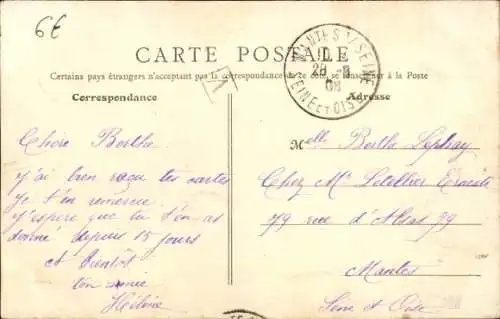 6€
CARTE POSTALE
Certains pays étrangers n'acceptant pas la correspondance de ce côté, se renseigner à la Poste
Correspondance
Adresse
MANTES S/SEINE
08
SEINE ET OISE
Chère Berthe
j'ai bien reçu tes cartes
je t'en remercie
j'espère que tu t'en as
donné depuis 15 jours
A Bientôt
ton amie
Hélène
Melle Berthe Lephay
Chez Mr Letellier
79 rue d'Alsas 79
Mantes
Seine et Oise